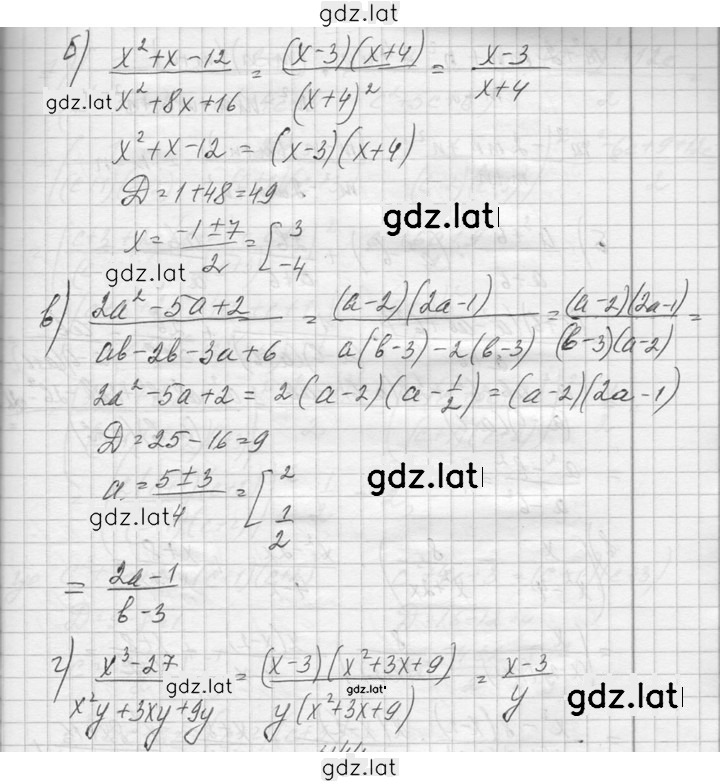 gdz.lat
б) (x² + x - 12)/(x² + 8x + 16) = (x-3)(x+4)/(x+4)² = (x-3)/(x+4)
gdz.lat
x² + x - 12 = (x-3)(x+4)
D = 1 + 48 = 49
gdz.lat
x = (-1 ± 7)/2 = [3 -4
gdz.lat
в) (2a² - 5a + 2)/(ab - 2b - 3a + 6) = (a-2)(2a-1)/(a(b-3) - 2(b-3)) = (a-2)(2a-1)/((b-3)(a-2)) =
2a² - 5a + 2 = 2(a-2)(a - 1/2) = (a-2)(2a-1)
D = 25 - 16 = 9
gdz.lat
a = (5 ± 3)/4 = [2 1/2
gdz.lat
= (2a-1)/(b-3)
г) (x³ - 27)/(x²y + 3xy + 9y) = (x-3)(x² + 3x + 9)/(y(x² + 3x + 9)) = (x-3)/y
gdz.lat
gdz.lat
gdz.lat
gdz.lat